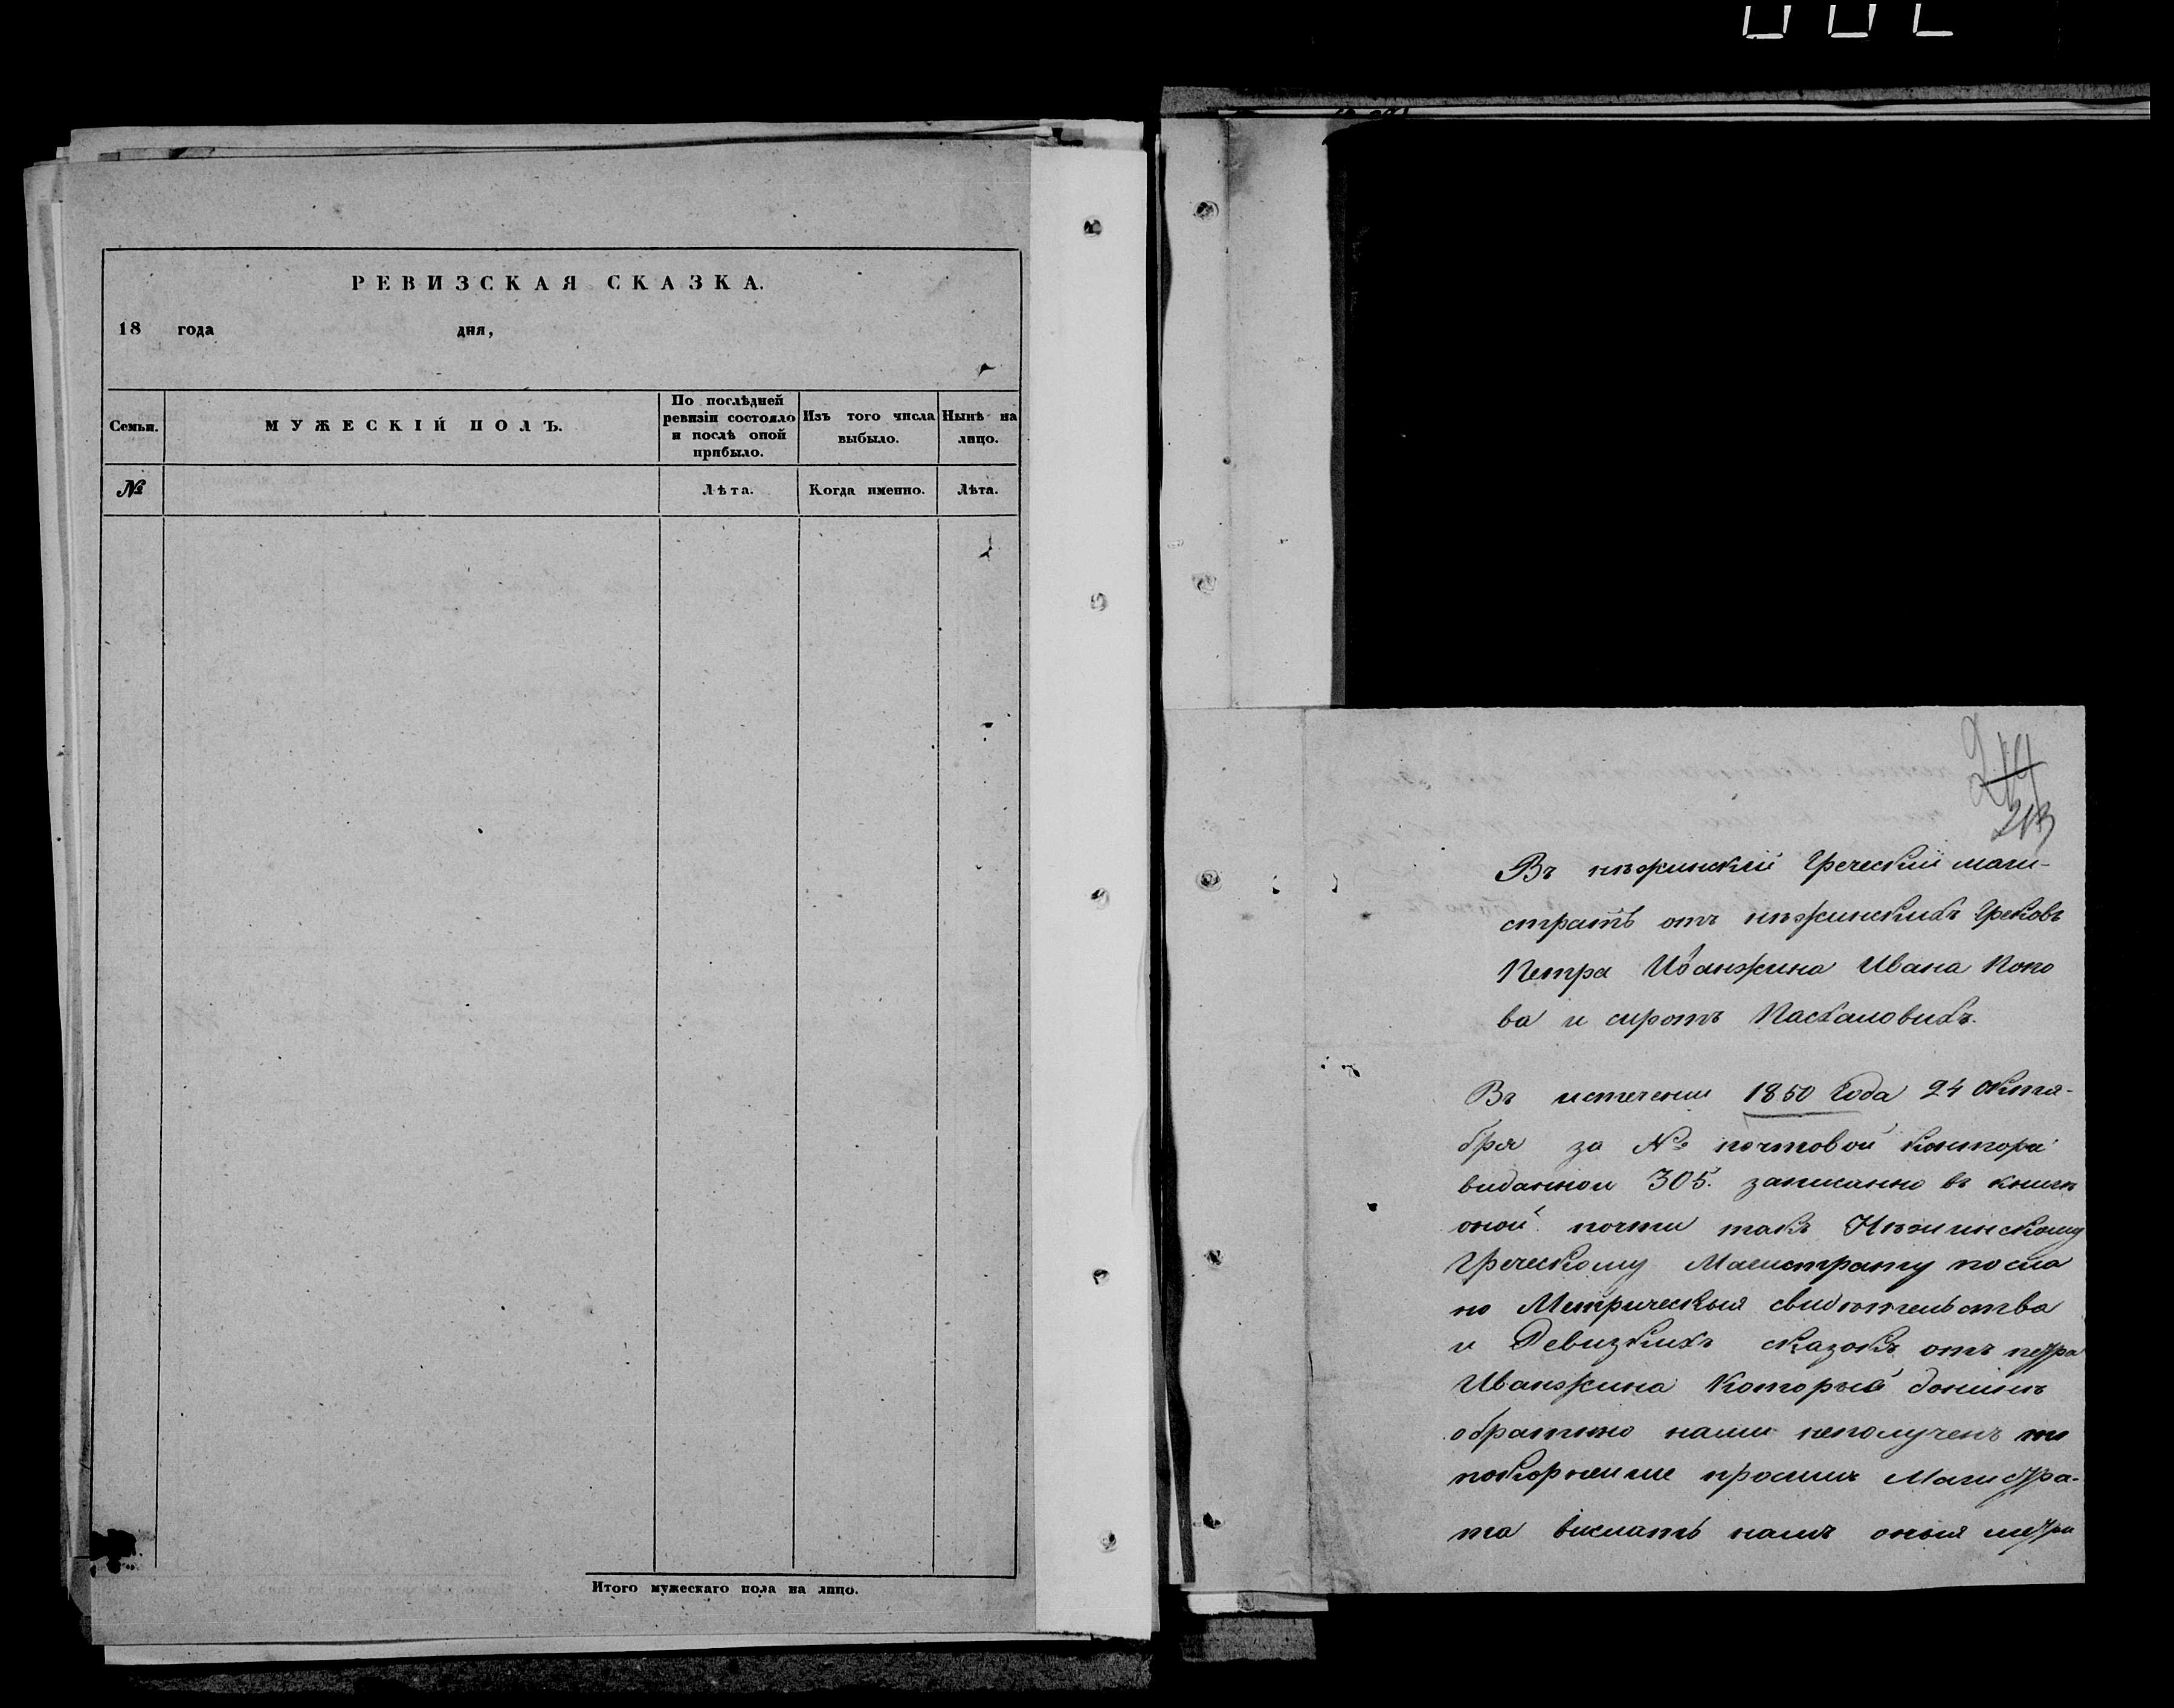 РЕВИЗСКАЯ СКАЗКА.
18 года дня,
Семьи.
МУЖЕСКІЙ ПОЛЪ.
По послѣдней
ревизіи состояло
и послѣ оной
прибыло.
Изъ того числа
выбыло.
Нынѣ на
лицо.
№
Лѣта.
Когда именно.
Лѣта.
Итого мужескаго пола на лицо.
214
213
Въ нѣжинскій Греческій маги-
стратъ отъ нѣжинскихъ Грековъ
Петра Иванжина Ивана Попо
ва и сиротъ Пасхаловихъ.
Въ истечении 1850 Года 24 Октя-
бря за № почтовой Канторы
виданной 305. записанно въ книгѣ
оной почти такъ Нѣжинскому
Греческому Магистрату посла
но Метрическия свидѣтельства
и Ревизкихъ сказокъ отъ петра
Иванжина Которые донинѣ
обратно нами неполученъ то
покорнеише просимъ Магистра-
та вислать намъ оныя метри